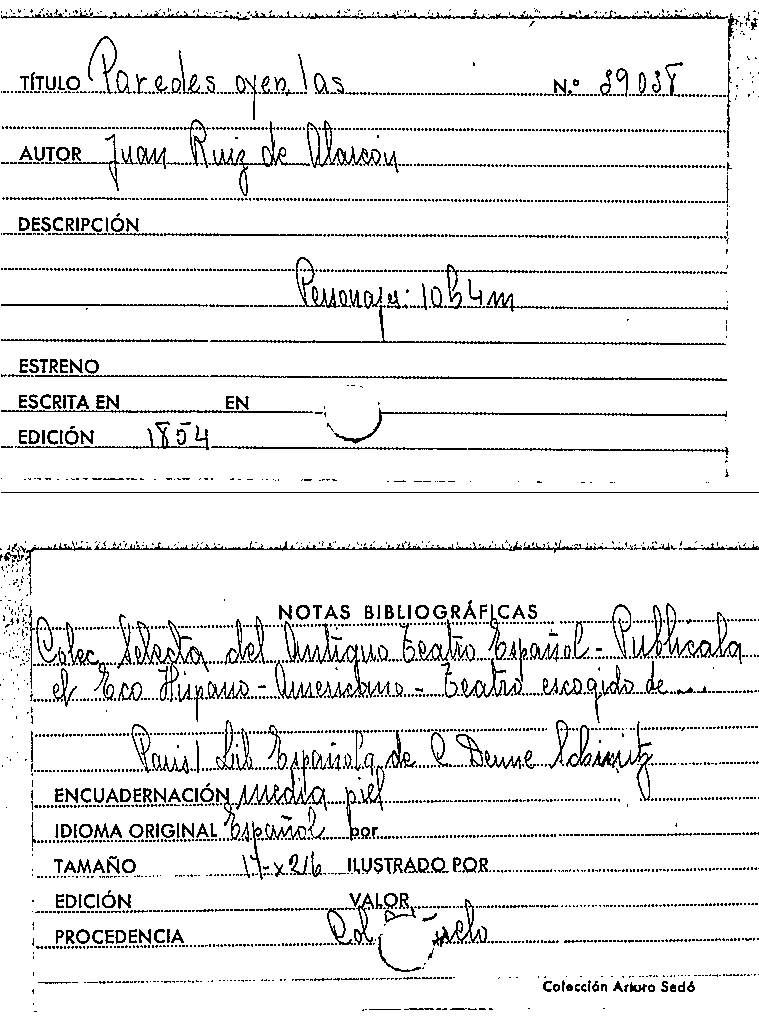 TÍTULO Paredes oyen, las N.º 39038
AUTOR Juan Ruiz de Alarcón
DESCRIPCIÓN
Personajes: 10h 4m
ESTRENO
ESCRITA EN EN
EDICIÓN 1854
NOTAS BIBLIOGRÁFICAS
Colec. Selecta del Antiguo Teatro Español - Publicala
el Eco Hispano-Americano - Teatro escogido de ...
Paris / Lib Española de E Denne Schmitz
ENCUADERNACIÓN media piel
IDIOMA ORIGINAL Español por
TAMAÑO ILUSTRADO POR
EDICIÓN VALOR
PROCEDENCIA Col
Colección Arturo Sedó